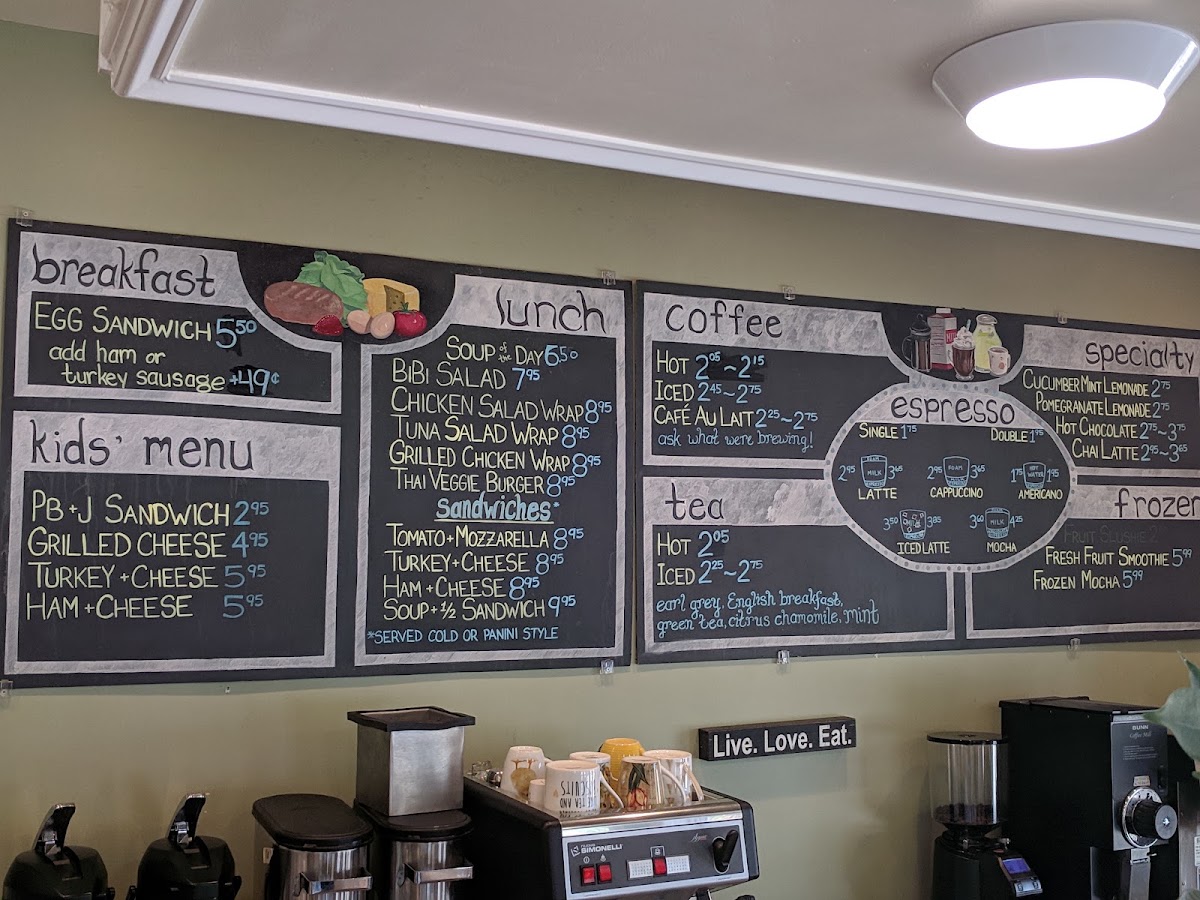 breakfast
EGG SANDWICH 5.50
add ham or
turkey sausage +.49¢
kids' menu
PB+J SANDWICH 2.95
GRILLED CHEESE 4.95
TURKEY+CHEESE 5.95
HAM+CHEESE 5.95
lunch
SOUP of the DAY 6.50
BIBI SALAD 7.95
CHICKEN SALAD WRAP 8.95
TUNA SALAD WRAP 8.95
GRILLED CHICKEN WRAP 8.95
THAI VEGGIE BURGER 8.95
Sandwiches*
TOMATO+MOZZARELLA 8.95
TURKEY+CHEESE 8.95
HAM+CHEESE 8.95
SOUP+½ SANDWICH 9.95
*SERVED COLD OR PANINI STYLE
coffee
HOT 2.05~2.15
ICED 2.45~2.75
CAFÉ AU LAIT 2.25~2.75
ask what were brewing!
tea
HOT 2.05
ICED 2.25~2.75
earl grey, English breakfast,
green tea, citrus chamomile, mint
espresso
SINGLE 1.75 DOUBLE 1.95
2.95 FOAM MILK 3.65
LATTE
2.95 FOAM 3.65
CAPPUCCINO
1.75 HOT WATER 1.95
AMERICANO
3.50 MILK 3.85
ICED LATTE
3.60 MILK 4.25
MOCHA
specialty
CUCUMBER MINT LEMONADE 2.75
POMEGRANATE LEMONADE 2.75
HOT CHOCOLATE 2.75~3.75
CHAI LATTE 2.95~3.65
frozen
FRUIT SLUSHIE 2
FRESH FRUIT SMOOTHIE 5.99
FROZEN MOCHA 5.99
Live. Love. Eat.
TEA AND BISCUITS
NUOVA SIMONELLI
BUNN
Coffee Mill